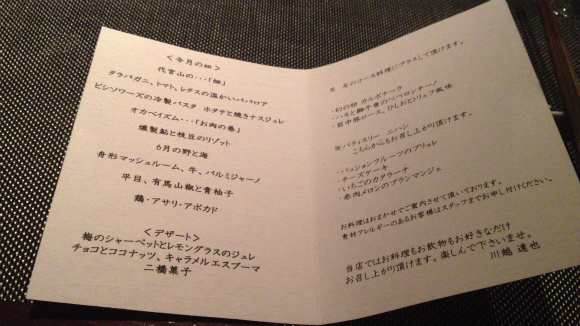 ＜今月の皿＞
代官山の・・・「畑」
タラバガニ、トマト、レタスの温かいババロア
ビシソワーズの冷製パスタ ホタテと焼きナスジュレ
オカベイズム・・・「お肉の巻」
燻製鮎と枝豆のリゾット
6月の野と海
舟形マッシュルーム、牛、パルミジャーノ
平目、有馬山椒と青柚子
鶏・アサリ・アボカド
＜デザート＞
梅のシャーベットとレモングラスのジュレ
チョコとココナッツ、キャラメルエスプーマ
二橋菓子
※ 左のコース料理にプラスして頂けます。
・幻の卵 カルボナーラ
・ハモと獅子唐のペペロンチーノ
・岩中豚ロース、ひしおとトリュフ風味
※パティスリー ニハシ
こちらからもお召し上がり頂けます。
・パッションフルーツのブリュレ
・チーズケーキ
・いちごのカタラーナ
・赤肉メロンのブランマンジェ
お料理はおまかせでご案内させて頂いております。
食材アレルギーのあるお客様はスタッフまでお申し付けください。
当店ではお料理もお飲物もお好きなだけ
お召し上がり頂けます。楽しんで下さいませ。
川越 達也